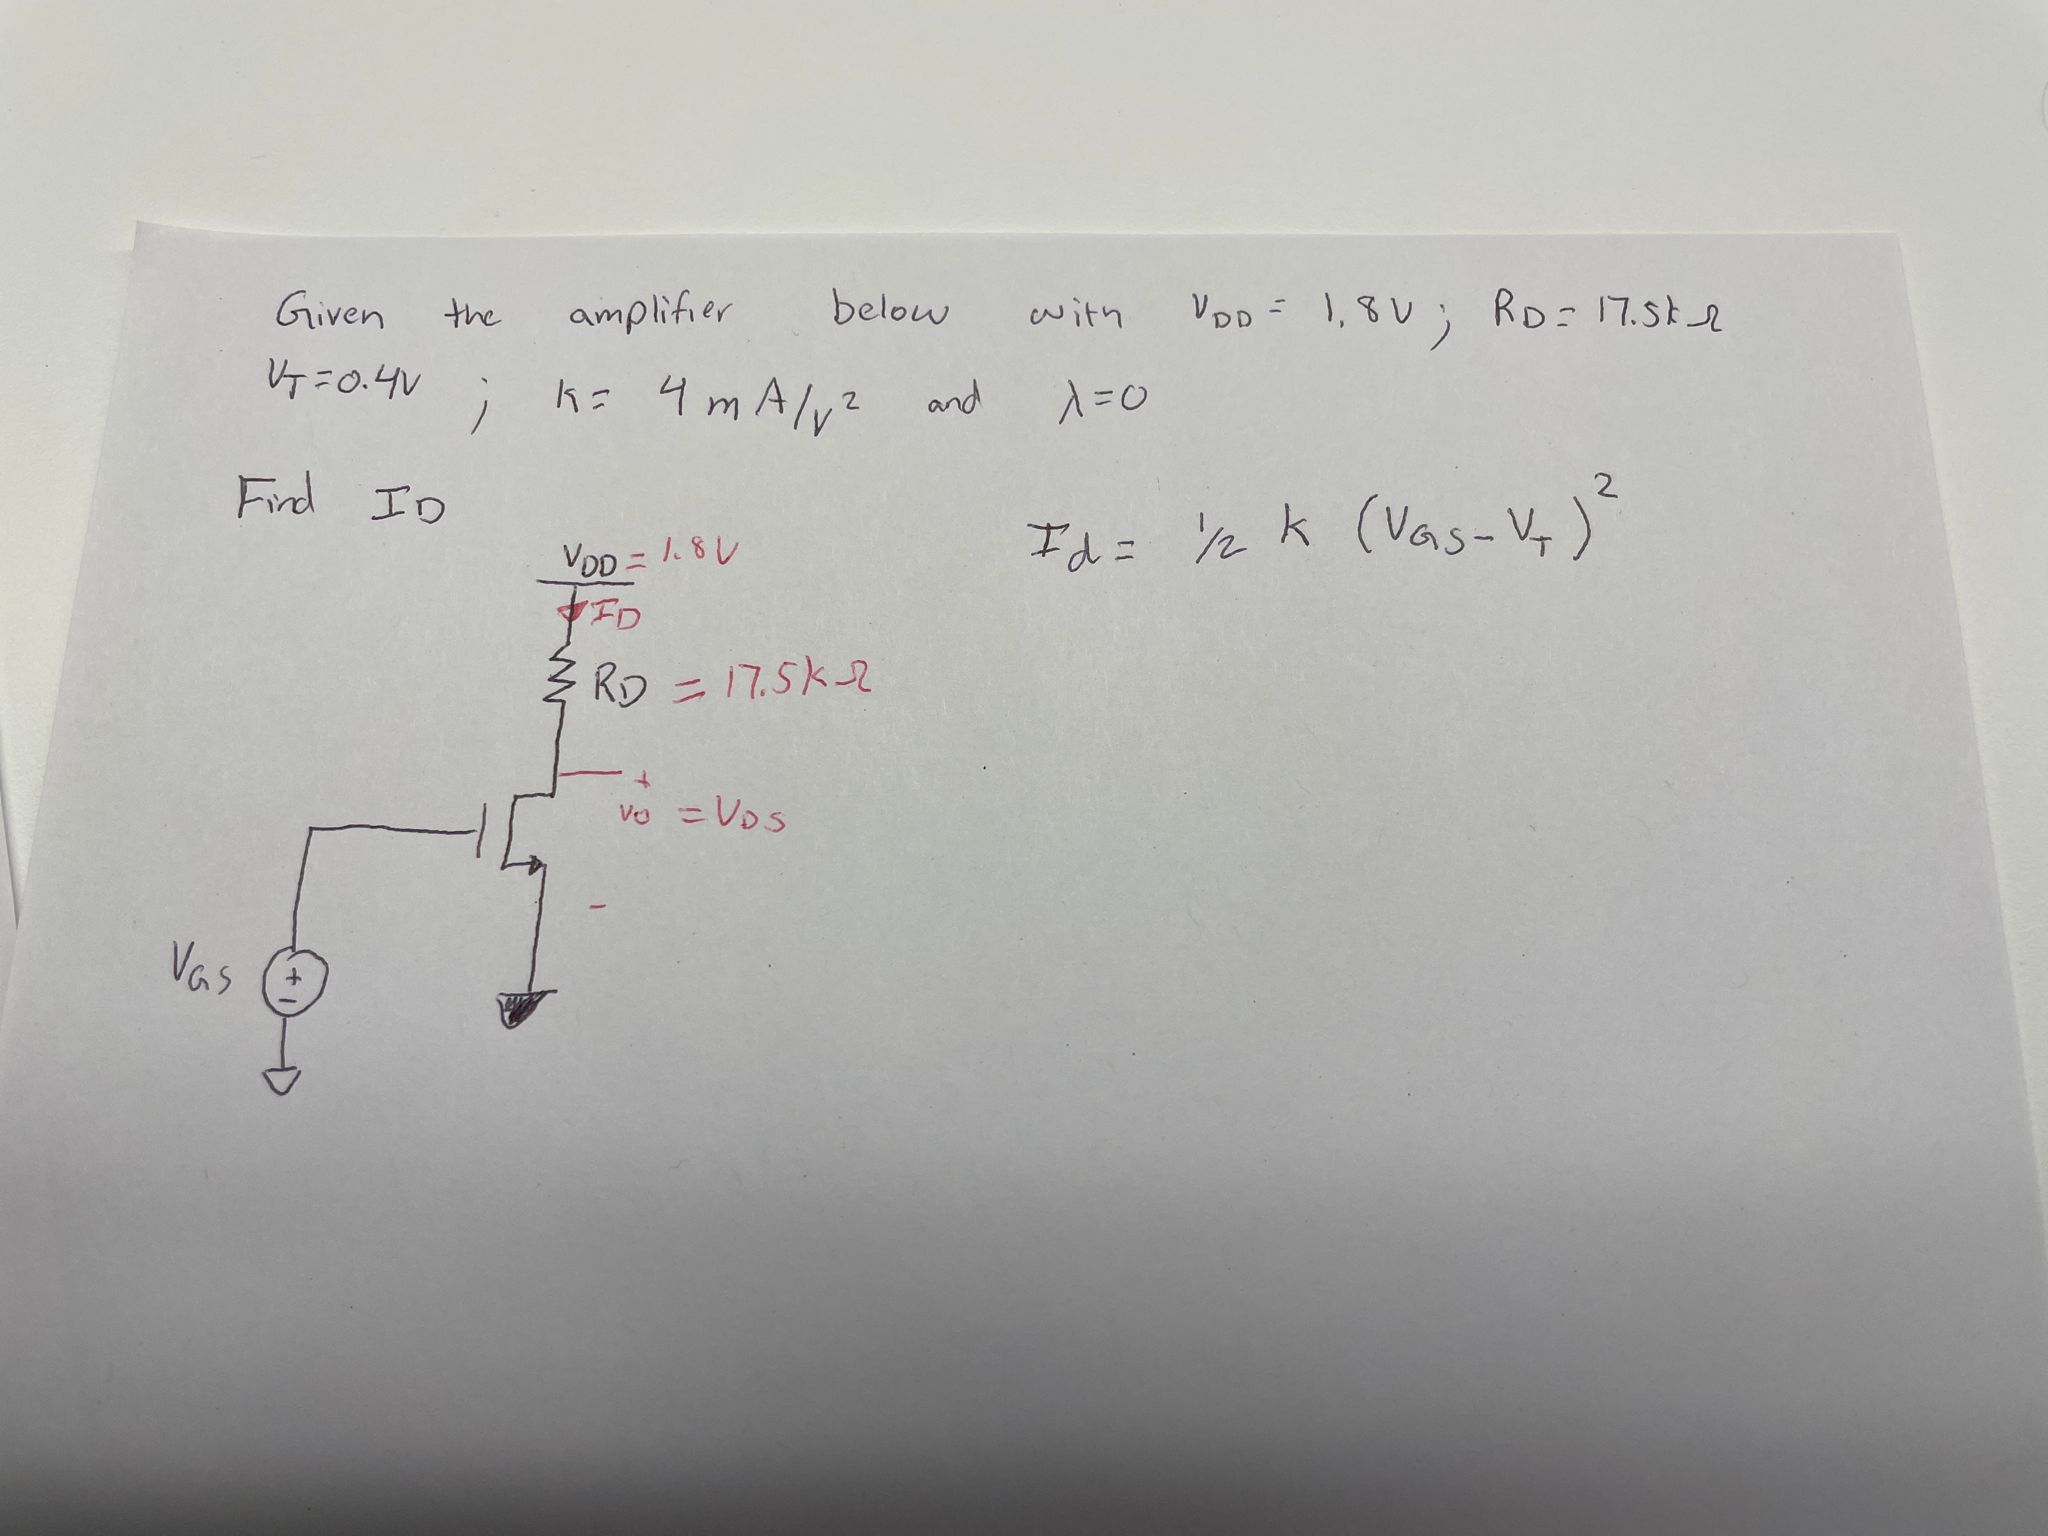 Given the amplifier below with VDD = 1.8V; RD = 17.5kΩ
VT=0.4V ; k= 4 mA/V² and λ=0
Find ID
Id = 1/2 k (VGS-VT)²
VDD = 1.8V
ID
RD = 17.5kΩ
+
vo = VDS
-
VGS
+
-